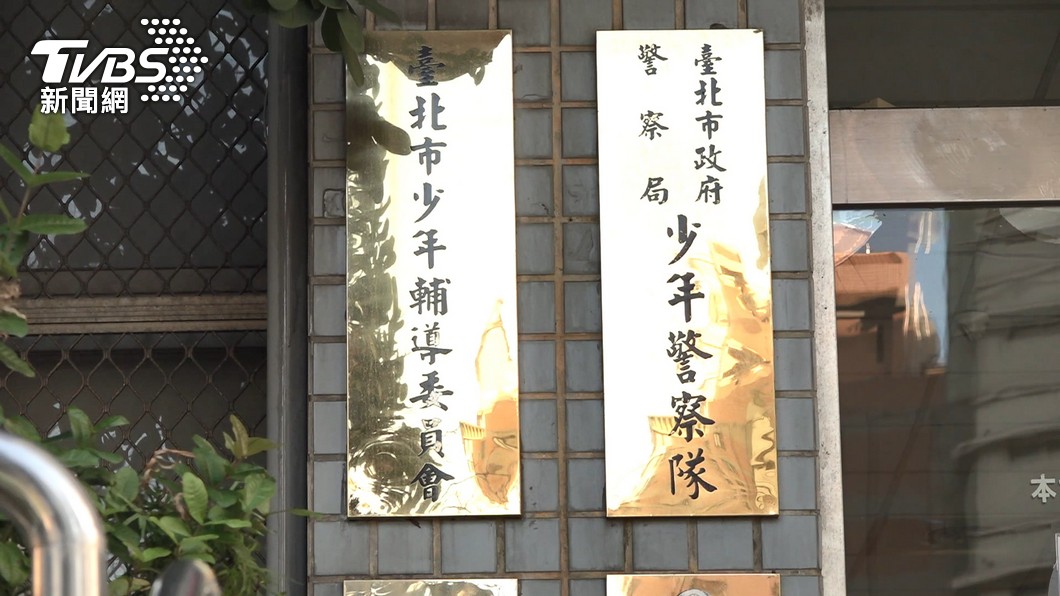 TVBS
新聞網
臺北市少年輔導委員會
臺北市政府
警察局
少年警察隊
本